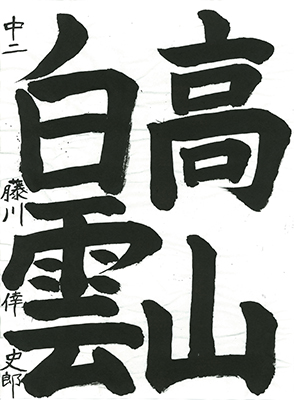 高山
白雲
中二 藤川 倖史郎